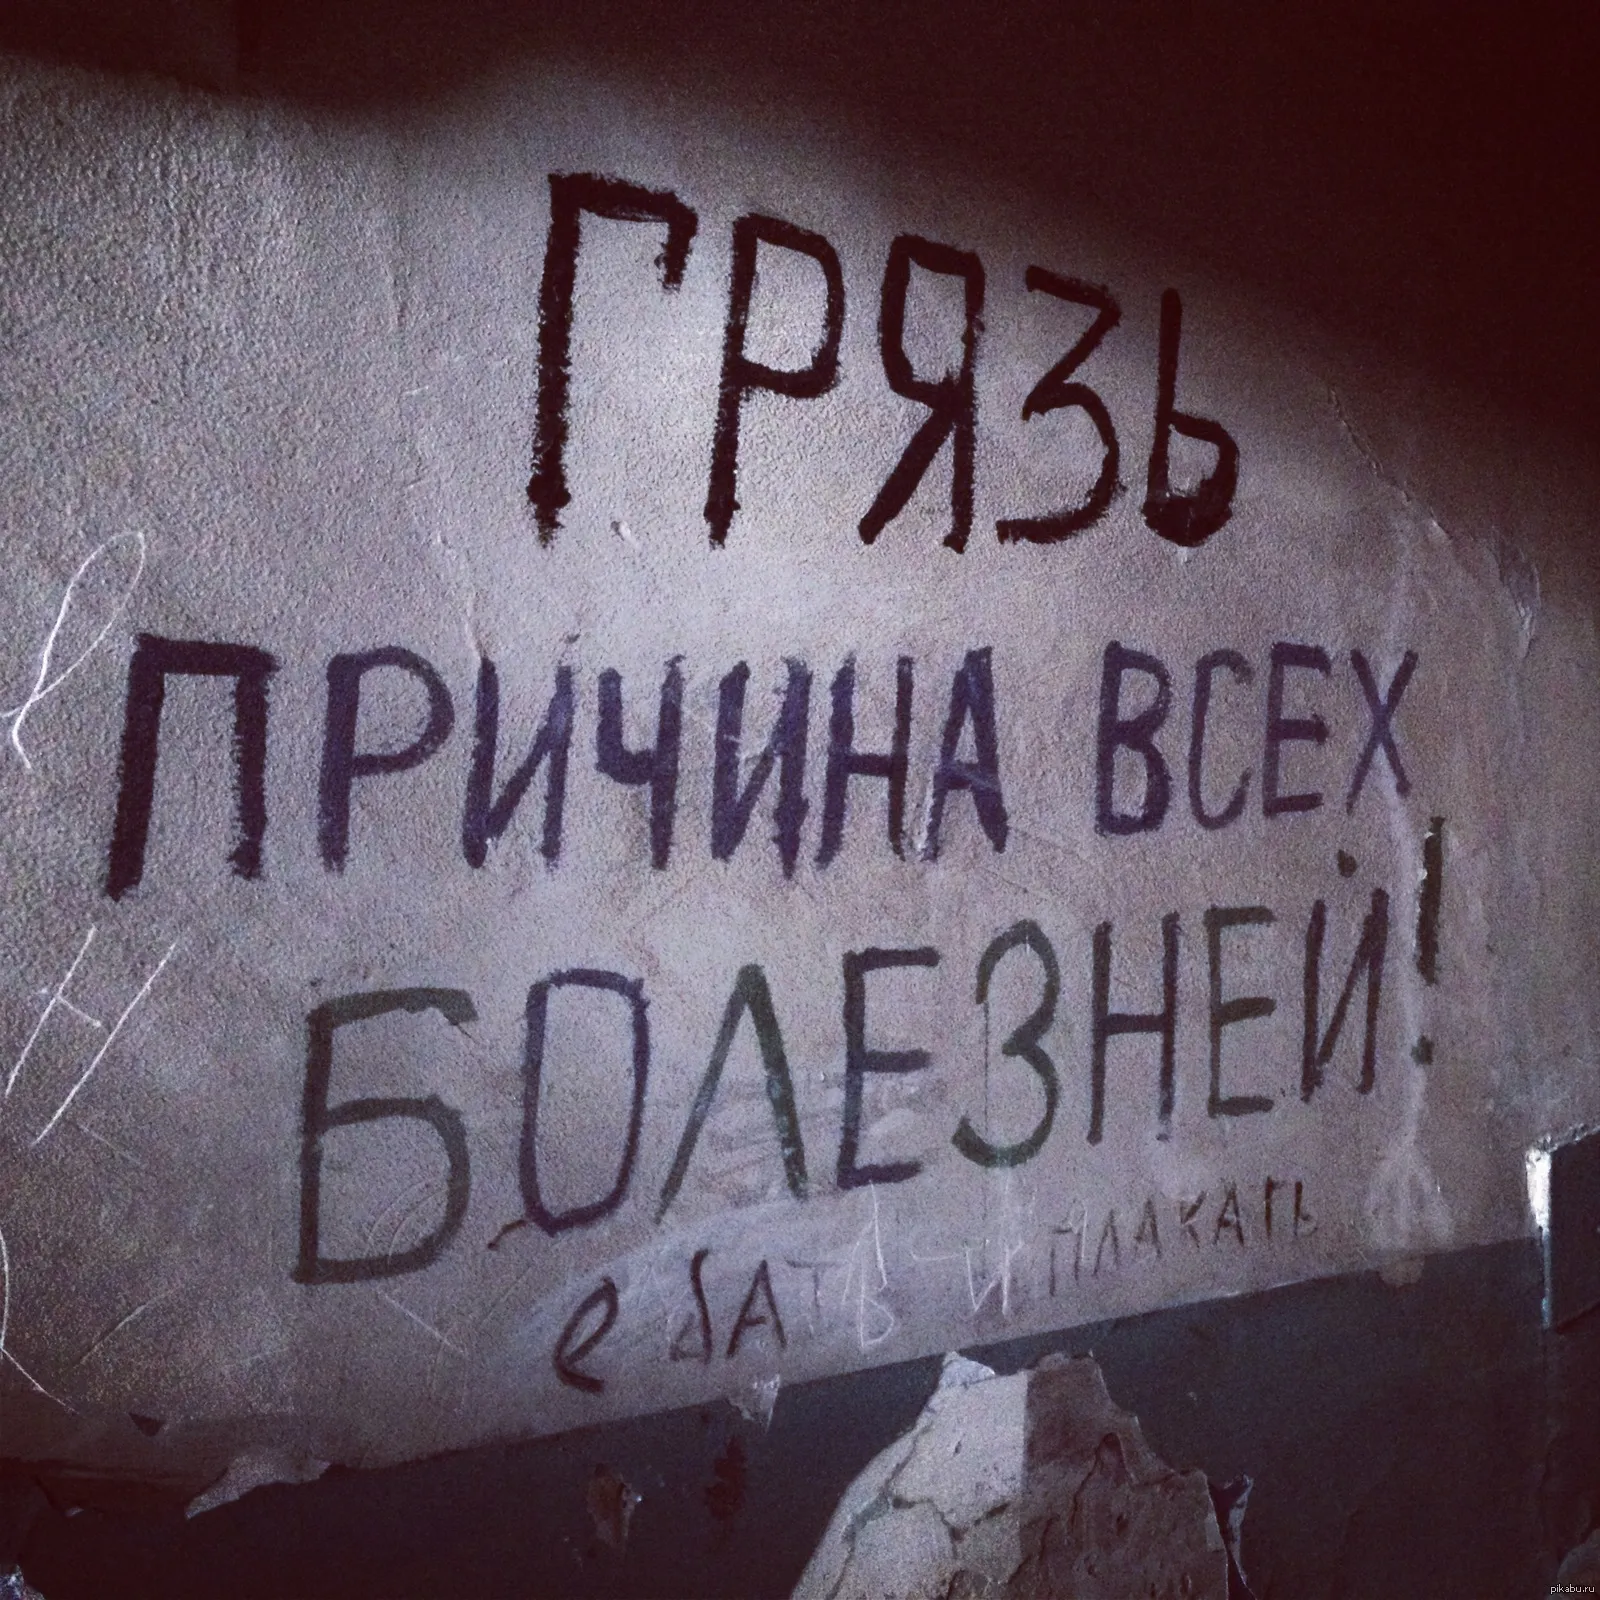 ГРЯЗЬ
ПРИЧИНА ВСЕХ
БОЛЕЗНЕЙ!
ебАТЬ И ПЛАКАТЬ
Н
pikabu.ru